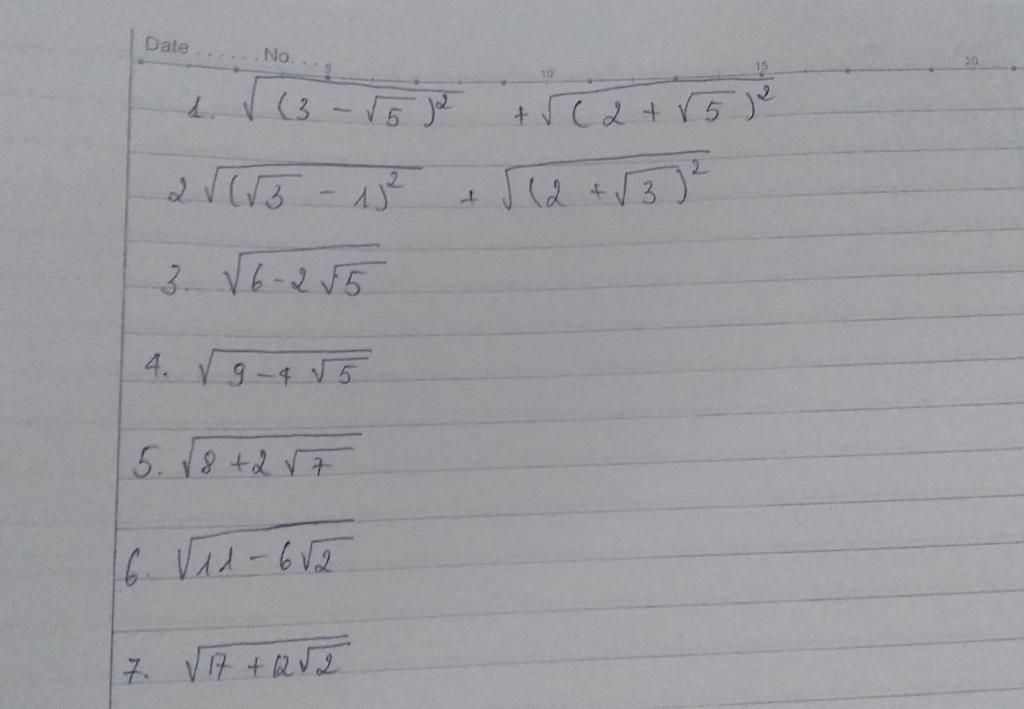 Date ...... No. ...
5 10 15 20
1. √(3 - √5)² + √(2 + √5)²
2 √(√3 - 1)² + √(2 + √3)²
3. √6-2√5
4. √9-4√5
5. √8+2√7
6. √11-6√2
7. √17+12√2